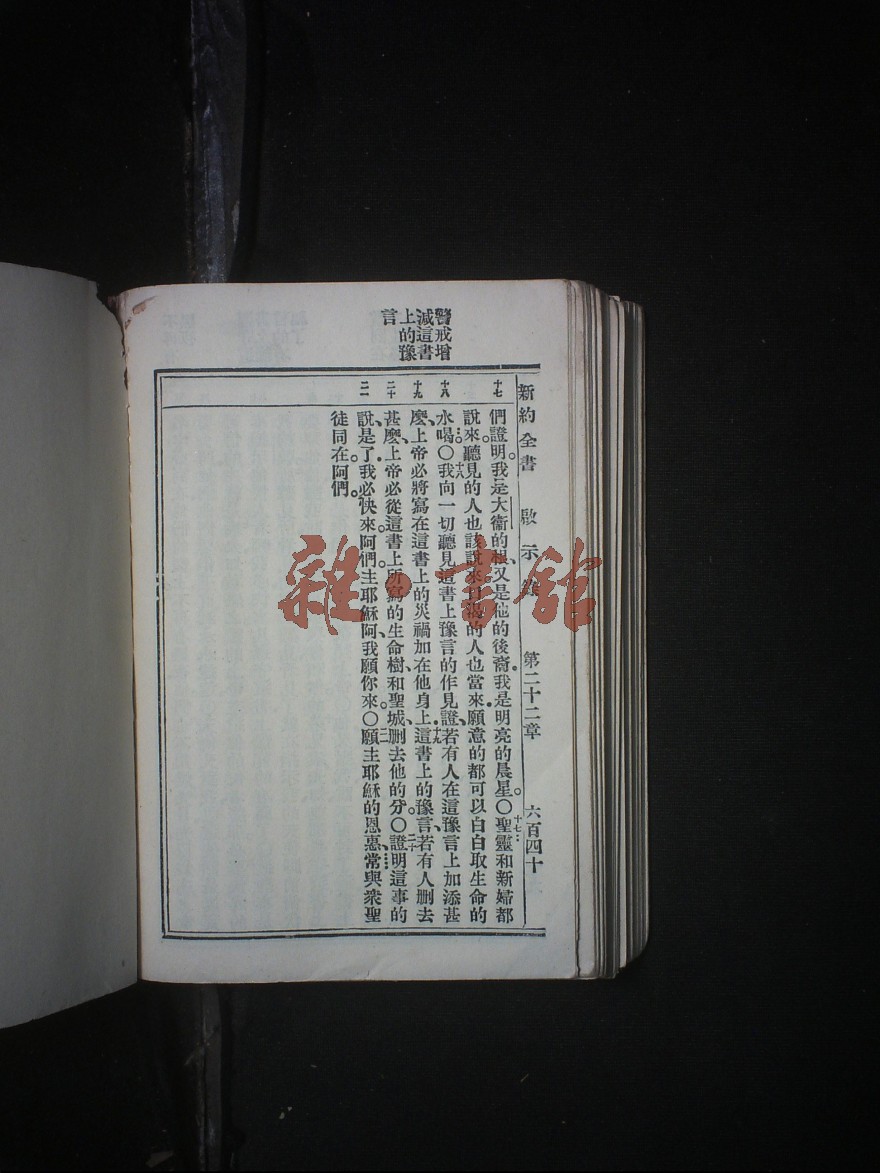 警戒增
減這書
上的豫
言
新約全書 啟示錄 第二十二章 六百四十
十七
十八
十九
二十
二一
們證明。我是大衞的根、又是他的後裔.我是明亮的晨星。〇十七聖靈和新婦都
說來。聽見的人也該說來。口渴的人也當來.願意的都可以白白取生命的
水喝。〇十八我向一切聽見這書上豫言的作見證、若有人在這豫言上加添甚
麽、上帝必將寫在這書上的災禍加在他身上.十九這書上的豫言、若有人删去
甚麽、上帝必從這書上所寫的生命樹、和聖城、删去他的分。〇二十證明這事的
說.是了.我必快來。阿們。主耶穌阿、我願你來。〇二一願主耶穌的恩惠、常與衆聖
徒同在。阿們。
雜·書館